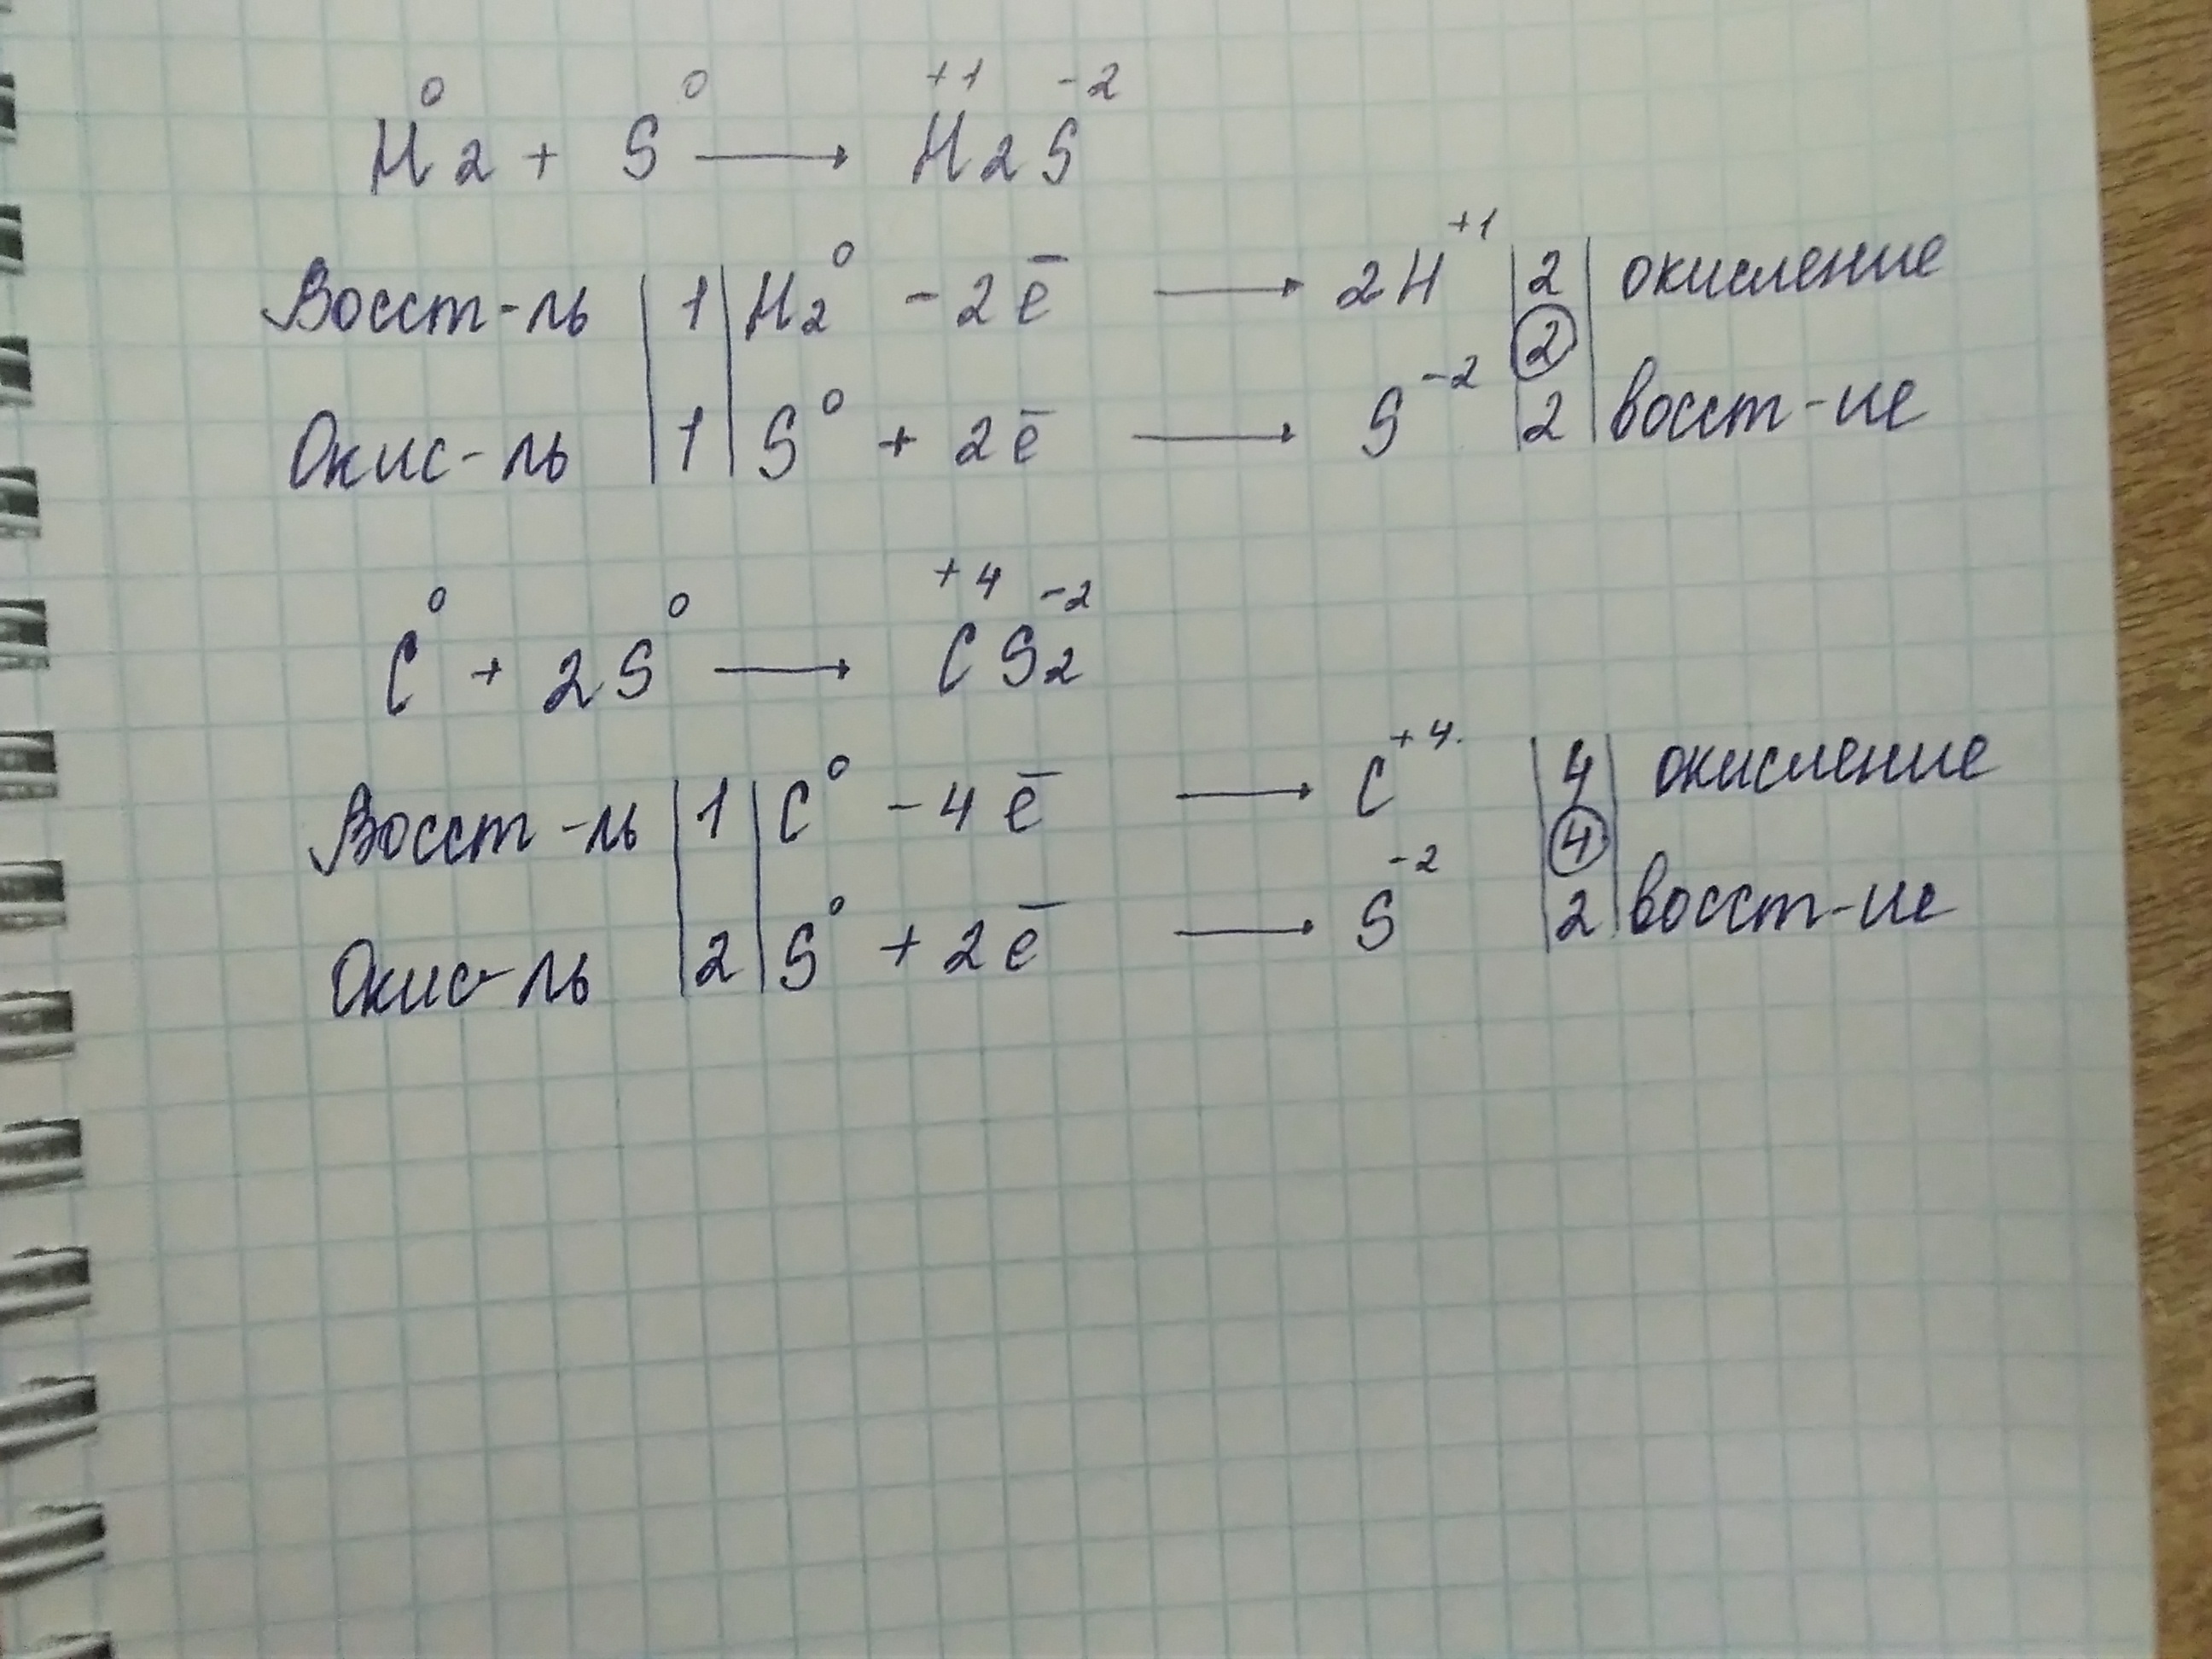 H₂⁰ + S⁰ → H₂⁺¹S⁻²
Восст-ль | 1 | H₂⁰ - 2ē → 2H⁺¹ | 2 | окисление
②
Окис-ль | 1 | S⁰ + 2ē → S⁻² | 2 | восст-ие
C⁰ + 2S⁰ → C⁺⁴S₂⁻²
Восст-ль | 1 | C⁰ - 4ē → C⁺⁴ | 4 | окисление
④
Окис-ль | 2 | S⁰ + 2ē → S⁻² | 2 | восст-ие